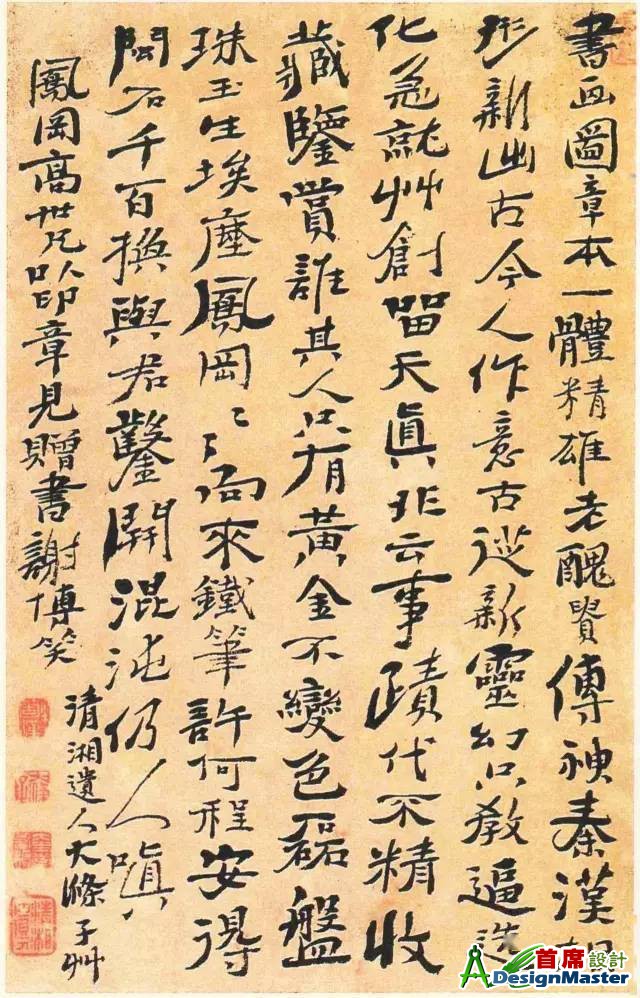 書画圖章本一體精雄老醜貴傳神秦漢
形新出古今人作意古從新靈幻只教逼造
化急就艸創留天真非云事蹟代不精收
藏鑒賞誰其人只有黃金不變色磊盤
珠玉生埃塵鳳岡〻〻向來鐵筆許何程安得
閩石千百換與君鑿開混沌仍人嗔
鳳岡高世兄以印章見贈書謝博笑
清湘遺人大滌子艸
首席設計
ADesignMaster